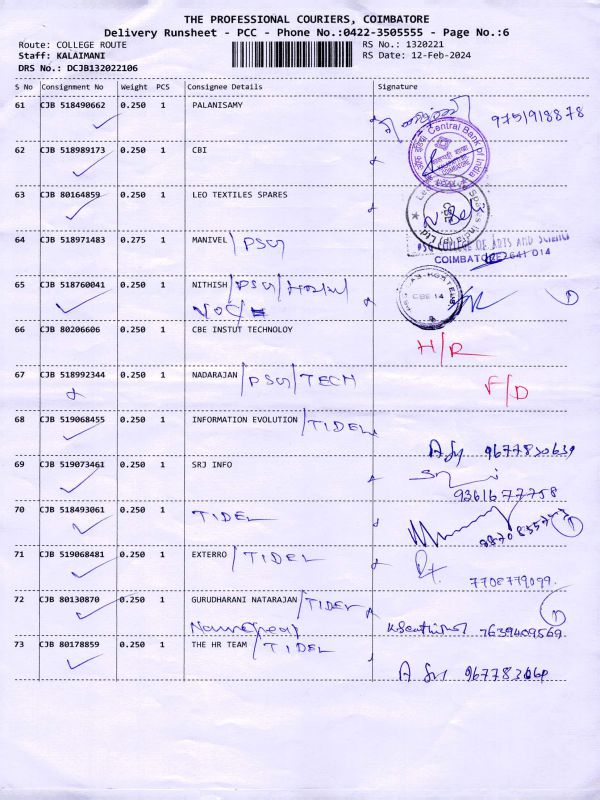 THE PROFESSIONAL COURIERS, COIMBATORE
Delivery Runsheet - PCC - Phone No.:0422-3505555 - Page No.:6
Route: COLLEGE ROUTE RS No.: 1320221
Staff: KALAIMANI RS Date: 12-Feb-2024
DRS No.: DCJB132022106
S No Consignment No Weight PCS Consignee Details Signature
61 CJB 518490662 0.250 1 PALANISAMY
9751918878
62 CJB 518989173 0.250 1 CBI
Central Bank of India
63 CJB 80164859 0.250 1 LEO TEXTILES SPARES
64 CJB 518971483 0.275 1 MANIVEL / PSG
PSG COLLEGE OF ARTS AND SCIENCE
COIMBATORE 641 014
65 CJB 518760041 0.250 1 NITHISH / PSG / Hostel
CBE 14
66 CJB 80206606 0.250 1 CBE INSTUT TECHNOLOY
H/R
67 CJB 518992344 0.250 1 NADARAJAN / PSG / TECH
F/D
68 CJB 519068455 0.250 1 INFORMATION EVOLUTION / TIDEL
9677830639
69 CJB 519073461 0.250 1 SRJ INFO
9361677758
70 CJB 518493061 0.250 1 TIDEL
71 CJB 519068481 0.250 1 EXTERRO / TIDEL
7708779099
72 CJB 80130870 0.250 1 GURUDHARANI NATARAJAN / TIDEL
7639409569
73 CJB 80178859 0.250 1 THE HR TEAM / TIDEL